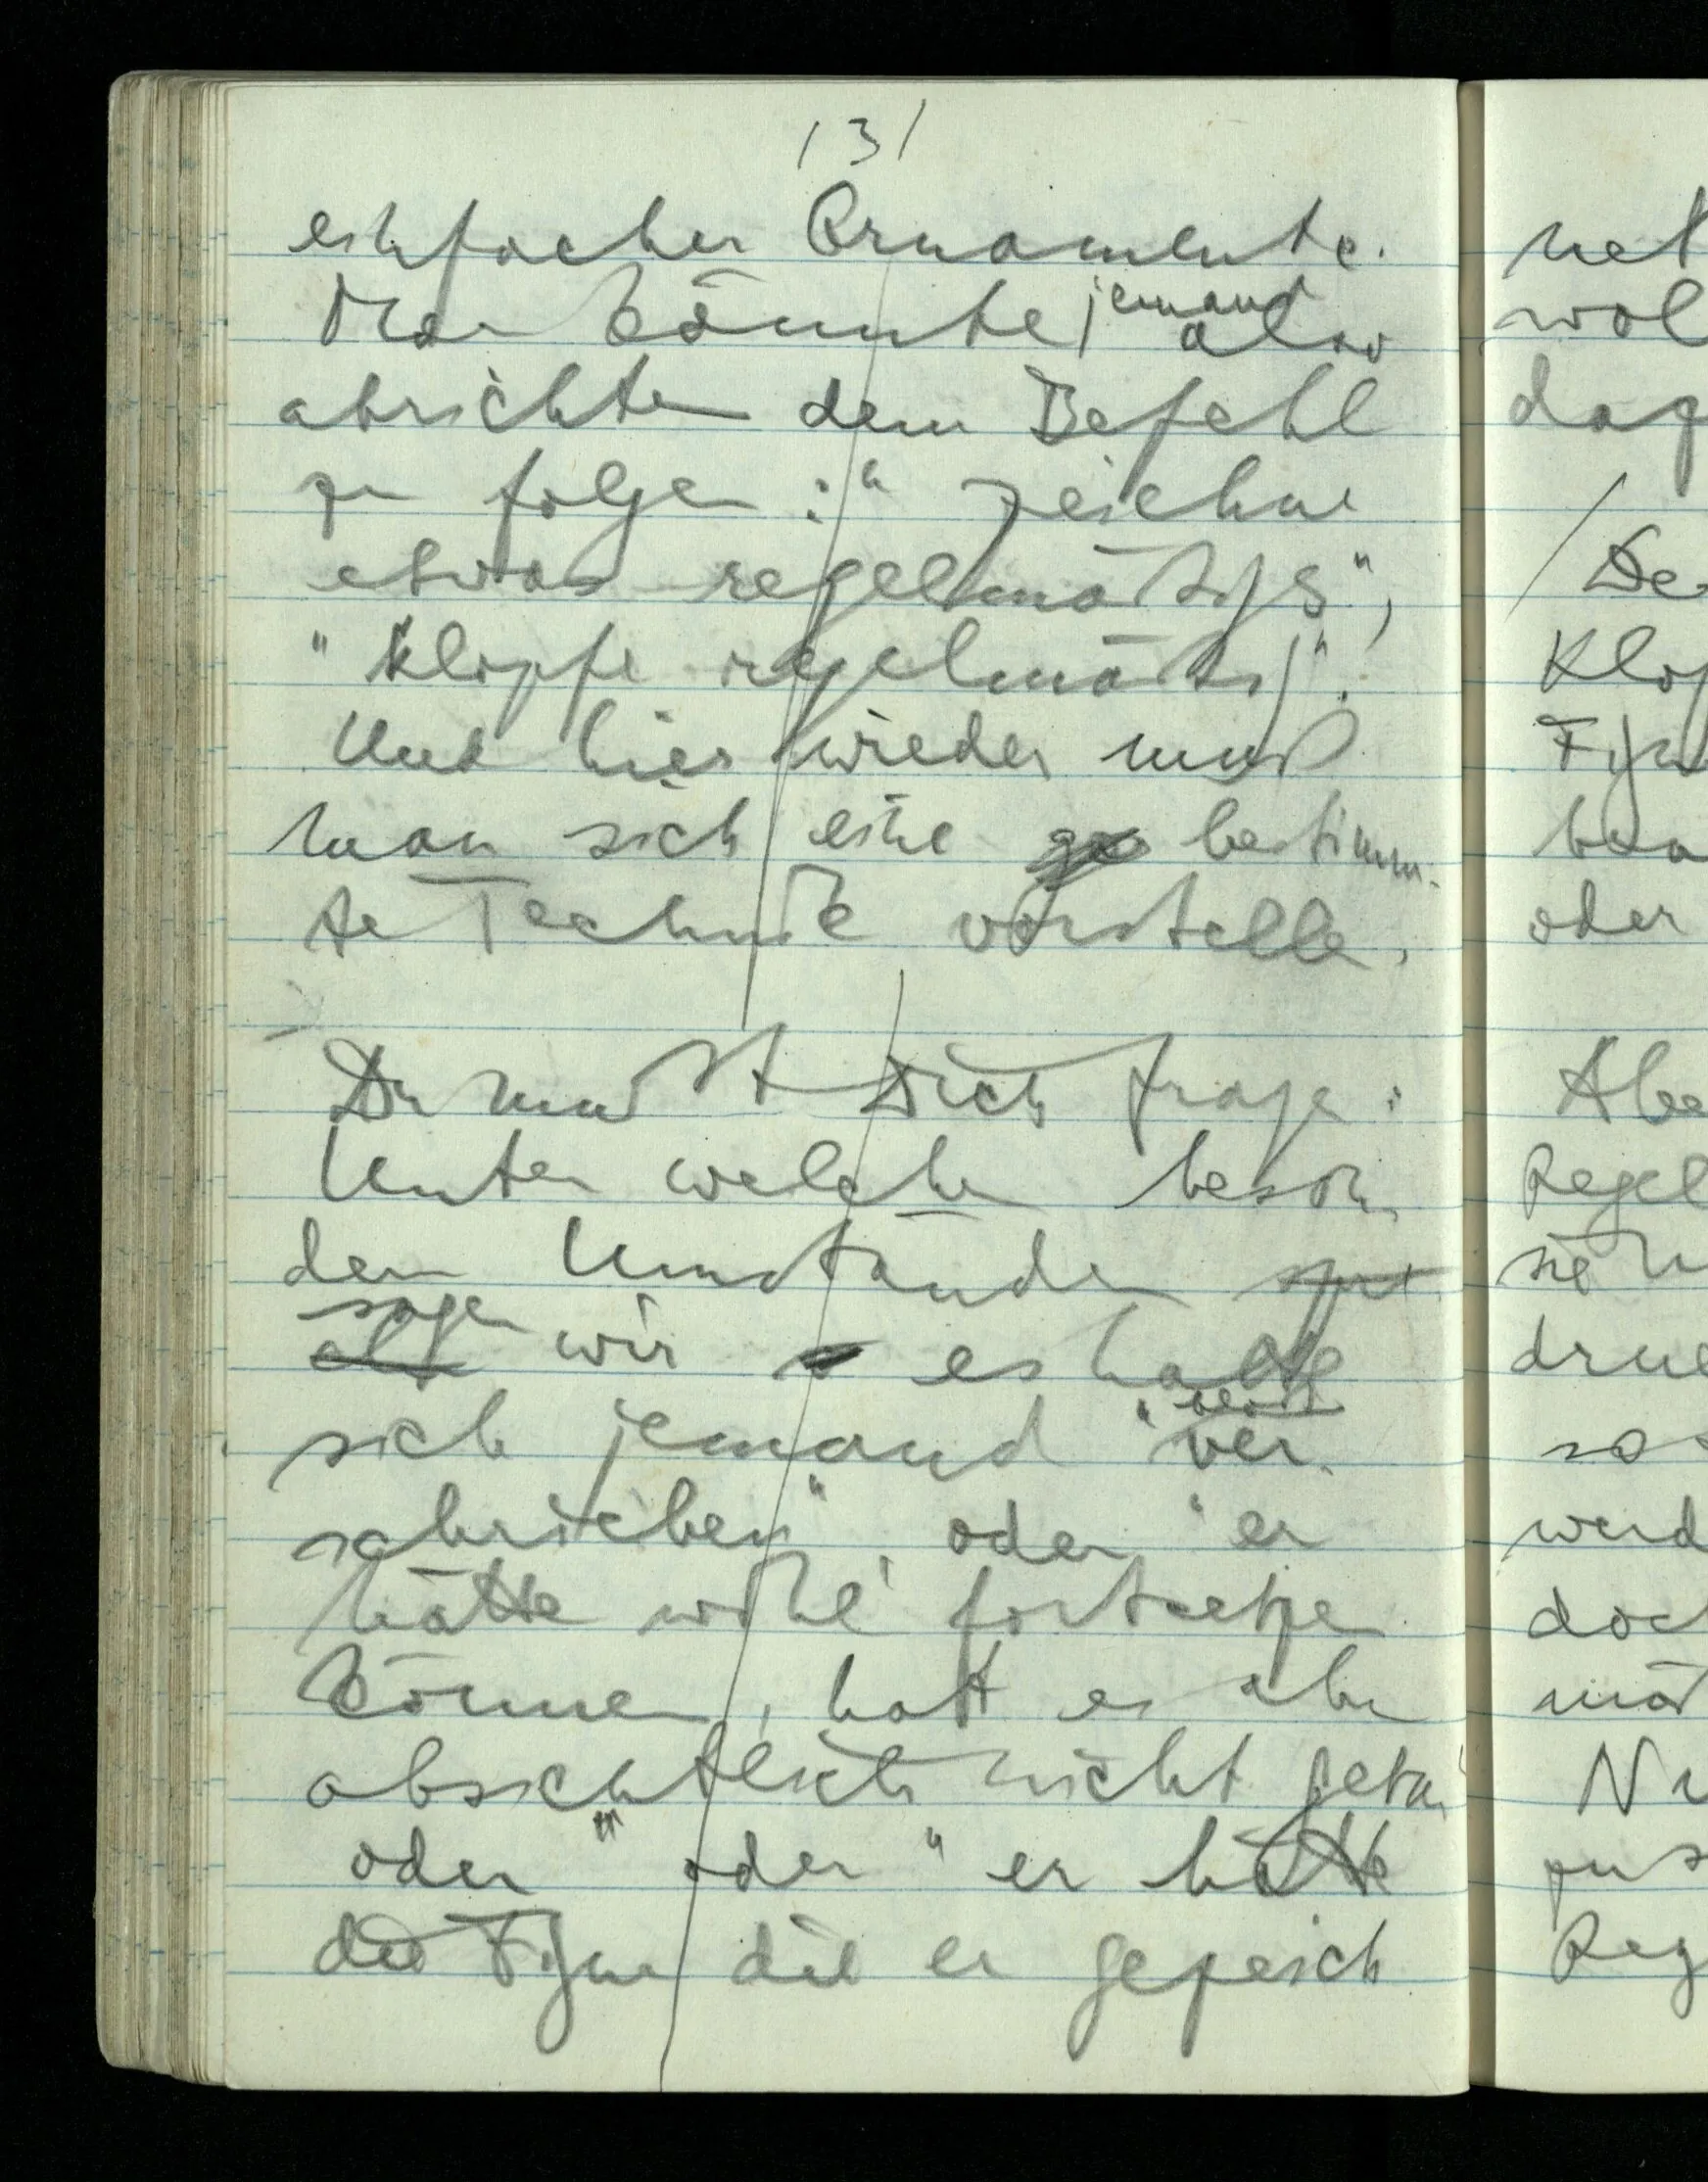 131
einfacher Ornamente.
Man könnte jemand also
abrichten dem Befehl
zu folgen: "zeichne
etwas regelmäßiges",
"klopfe regelmäßig".
Und hier wieder muß
man sich eine bestimm-
te Technik vorstellen.
Du mußt Dich fragen:
Unter welchen beson
dern Umständen
sagen
wir es habe
sich jemand "ver-
schrieben", oder "er
hätte wohl fortsetzen
können, hatt es aber
absichtlich nicht getan
oder" oder "er hätte
die Figur die er gezeich
net
wol
dag
De
Klop
Figu
oder
Abe
Regel
sie
druc
so
werd
doch
mäß
Nu
Reg